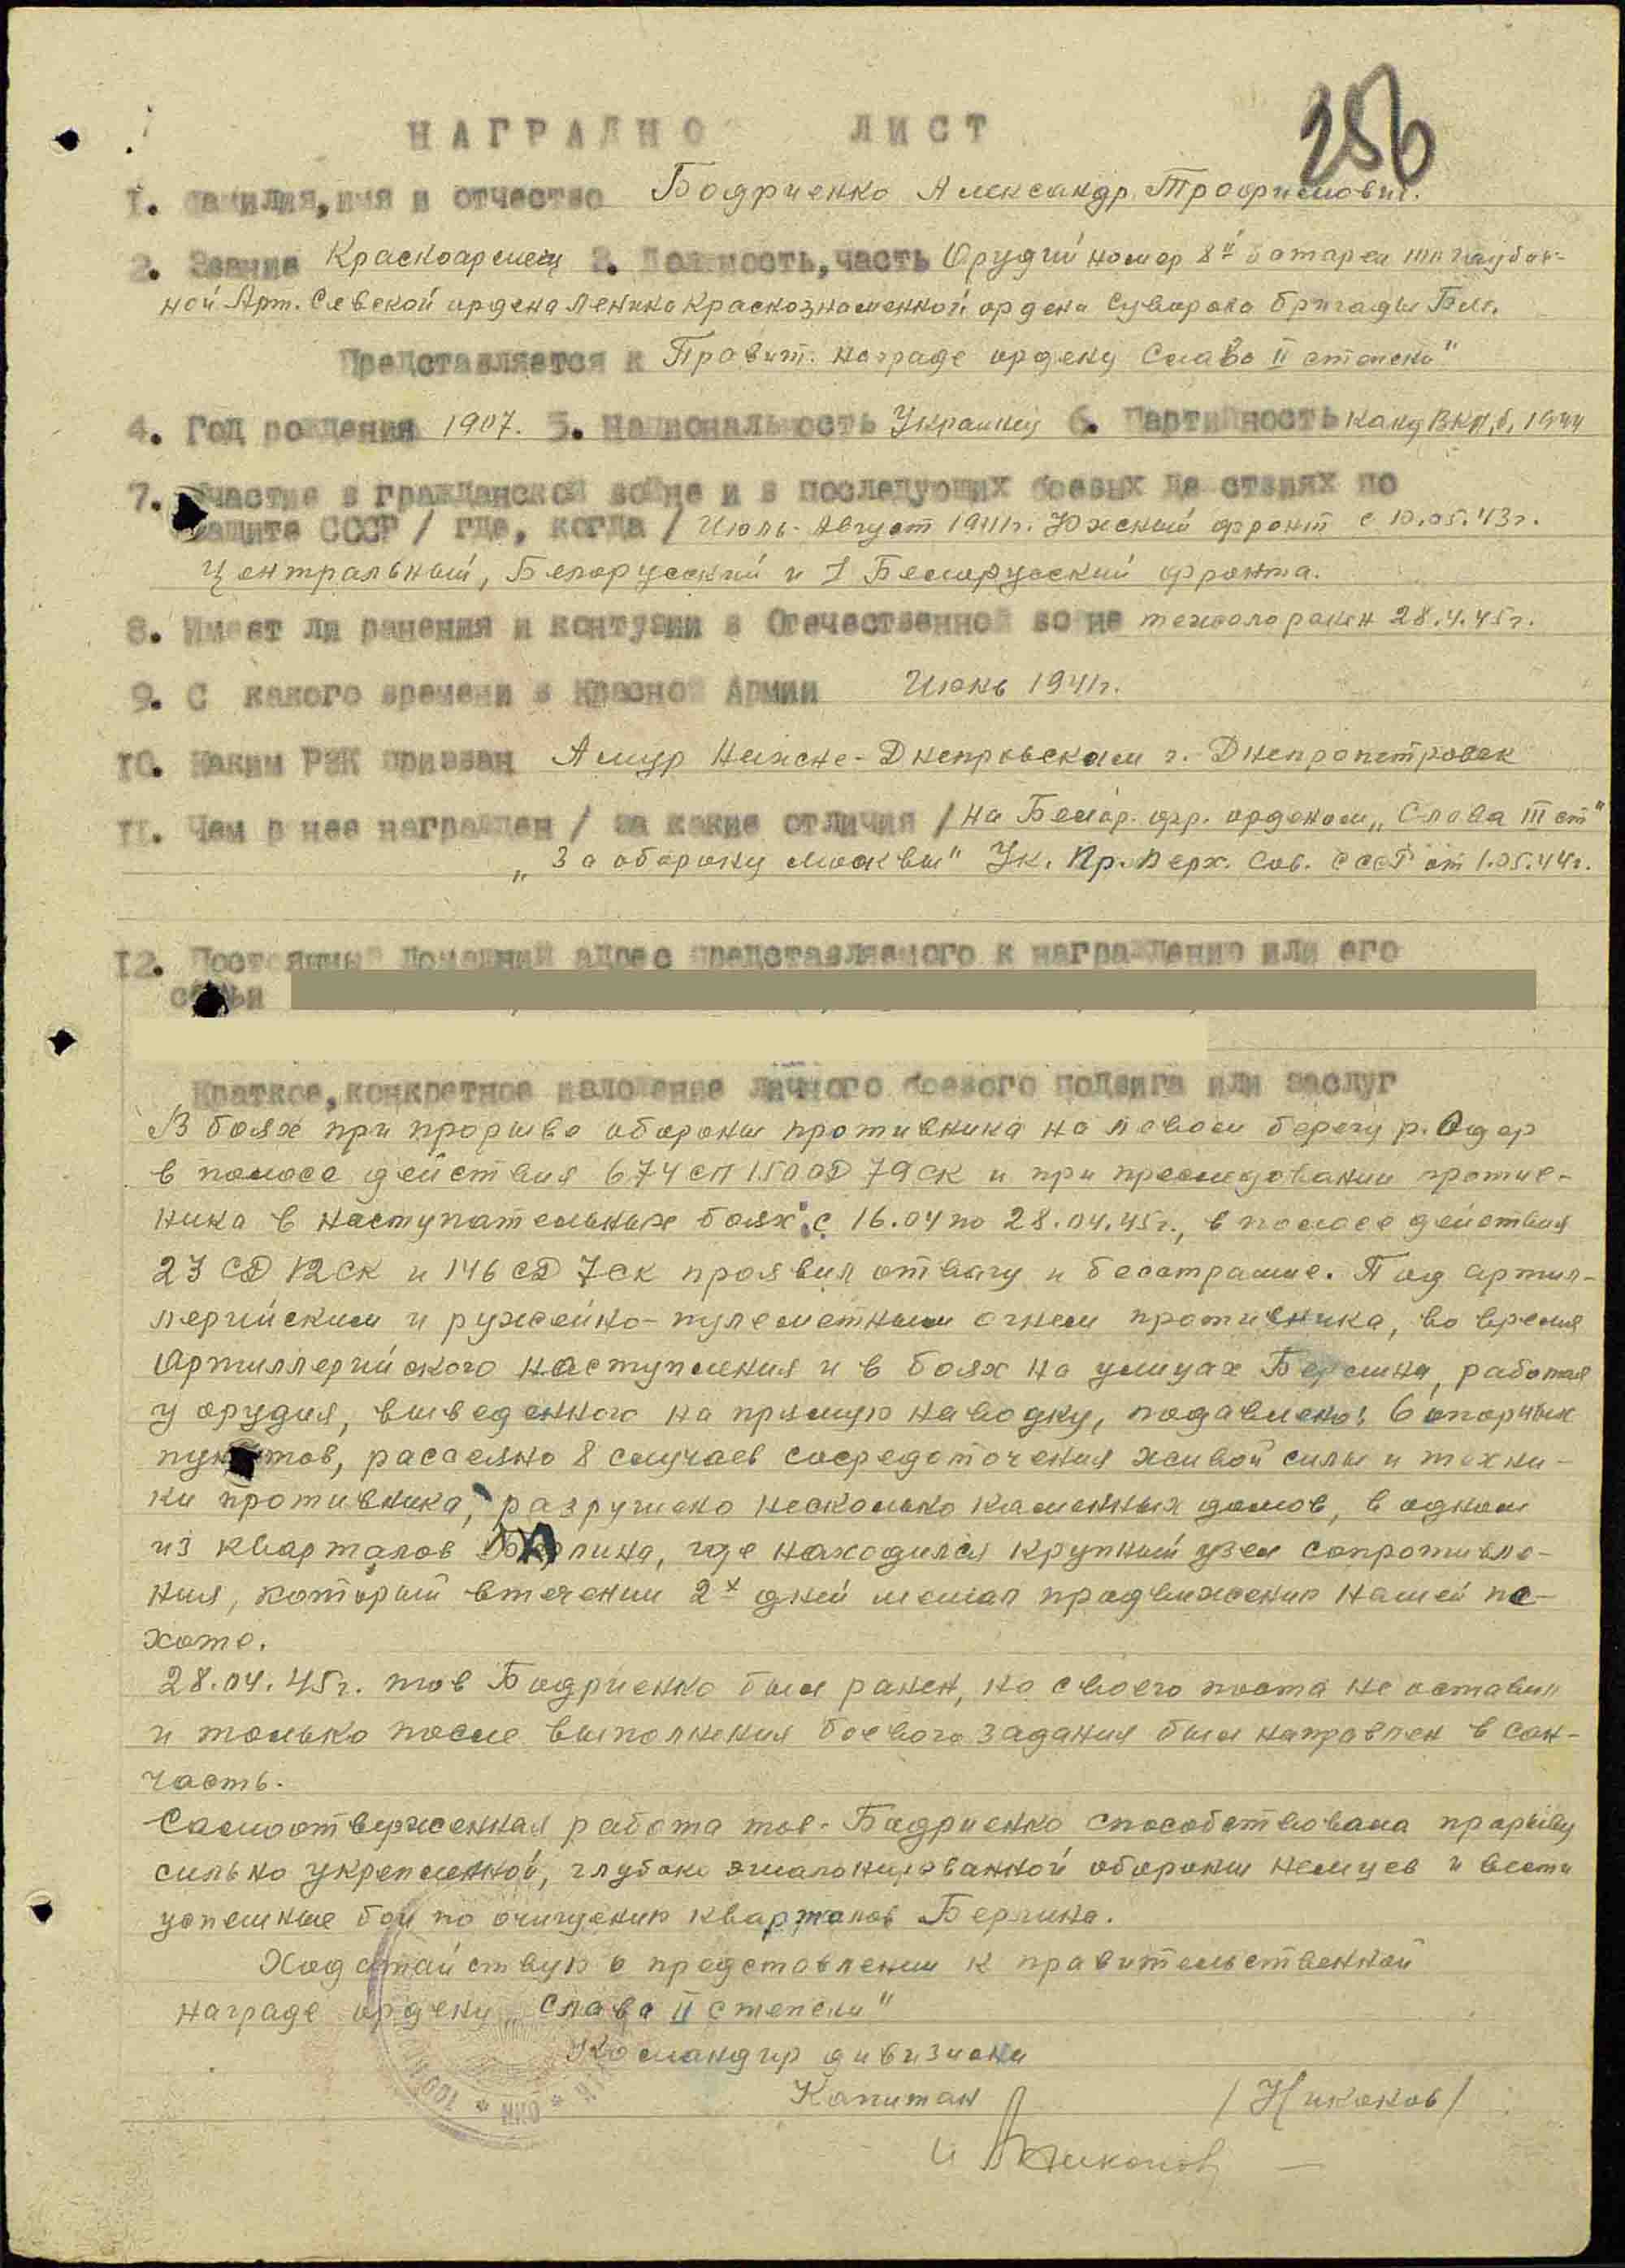 256
НАГРАДНО ЛИСТ
1. Фамилия, имя и отчество Бодриенко Александр Трофимович.
2. Звание Красноармеец 3. Должность, часть Орудий номер 8й батареи гаубич-
ной Арт. Севской ордена Ленина Краснознаменной ордена Суворова бригады Б.М.
Представляется к Правит. награде ордену Слава II степени"
4. Год рождения 1907. 5. Национальность Украинец 6. Партийность канд ВКП,б, 1944
7. Участие в гражданской войне и в последующих боевых действиях по
защите СССР / где, когда / Июль-Август 1941г. Южный фронт с 10.05.43г.
Центральный, Белорусский и I Белорусский фронта.
8. Имеет ли ранения и контузии в Отечественной войне тяжело ранен 28.4.45г.
9. С какого времени в Красной Армии Июнь 1941г.
10. Каким РВК призван Амур Нижне-Днепровским г. Днепропетровск
11. Чем ранее награжден / за какие отличия / на Белор. фр. орденом „Слава III ст"
„За оборону Москвы" Ук. Пр. Верх. Сов. СССР от 1.05.44г.
12. Постоянный домашний адрес представляемого к награждению или его
семьи
Краткое, конкретное изложение личного боевого подвига или заслуг
В боях при прорыве обороны противника на левом берегу р. Одер
в полосе действия 674 СП 150 СД 79 СК и при преследовании против-
ника в наступательных боях с 16.04 по 28.04.45г., в полосе действия
23 СД 12 СК и 146 СД 7 СК проявил отвагу и бесстрашие. Под артил-
лерийским и ружейно-пулеметным огнем противника, во время
артиллерийского наступления и в боях на улицах Берлина, работая
у орудия, выведенного на прямую наводку, подавлено: 6 опорных
пунктов, рассеяно 8 случаев сосредоточения живой силы и техни-
ки противника, разрушено несколько каменных домов, в одном
из кварталов Берлина, где находился крупный узел сопротивле-
ния, который втечении 2х дней мешал продвижению нашей пе-
хоте.
28.04.45г. тов Бодриенко был ранен, но своего поста не оставил
и только после выполнения боевого задания был направлен в сан-
часть.
Самоотверженная работа тов. Бодриенко способствовала прорыву
сильно укрепленной, глубоко эшалонированной обороны немцев и вести
успешные бои по очищению кварталов Берлина.
Ходатайствую о представлении к правительственной
награде ордену „Слава II степени"
Командир дивизиона
Капитан /Никонов/